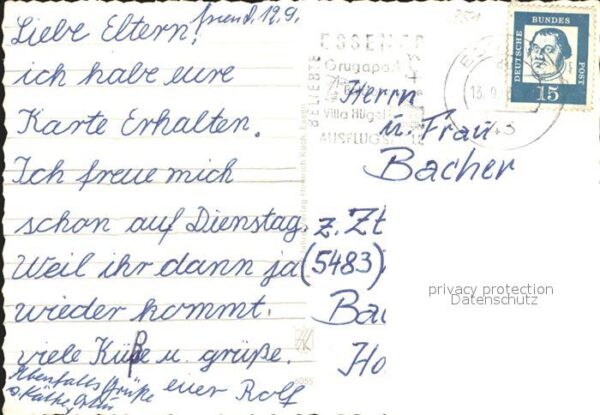 Liebe Eltern!
ich habe eure
Karte Erhalten.
Ich freue mich
schon auf Dienstag.
Weil ihr dann ja
wieder kommt.
viele Küße u. grüße.
euer Rolf
Ebenfalls Grüße
19.9.
ESSENER
Grugapark
Villa Hügel
BELIEBTE
AUSFLUGS
DEUTSCHE
BUNDES
POST
15
Herrn
u. Frau
Bacher
z. Zt
(5483)
Ba
Ho
privacy protection
Datenschutz